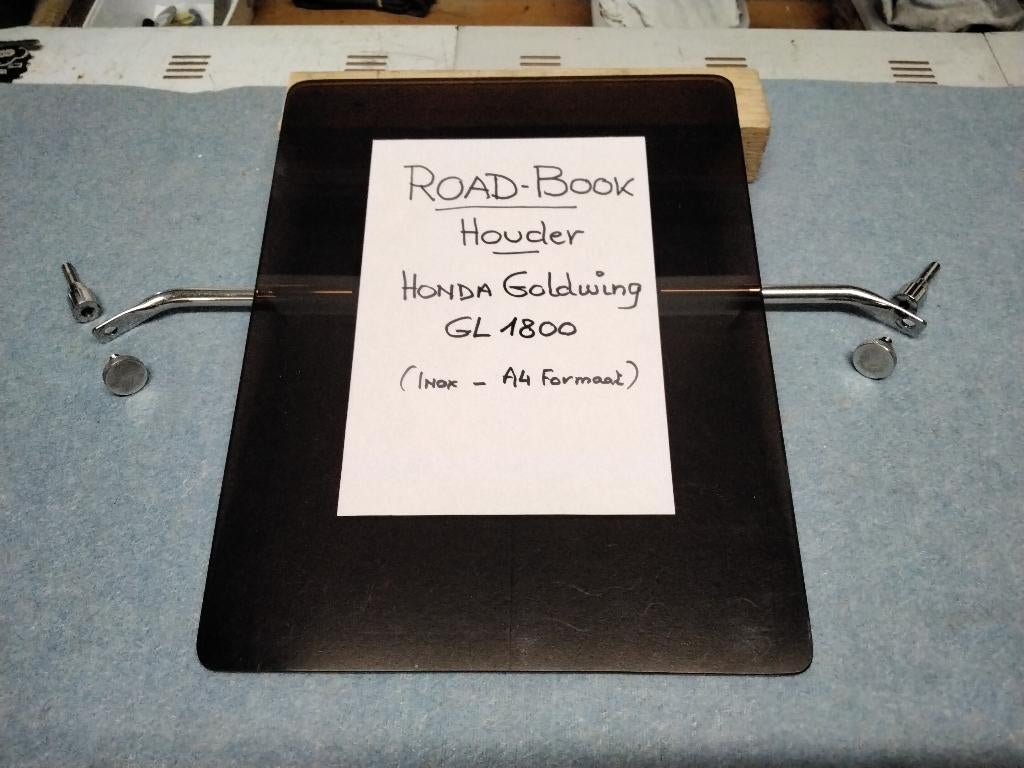 ROAD-BOOK
Houder
HONDA Goldwing
GL 1800
(Inox - A4 Formaat)